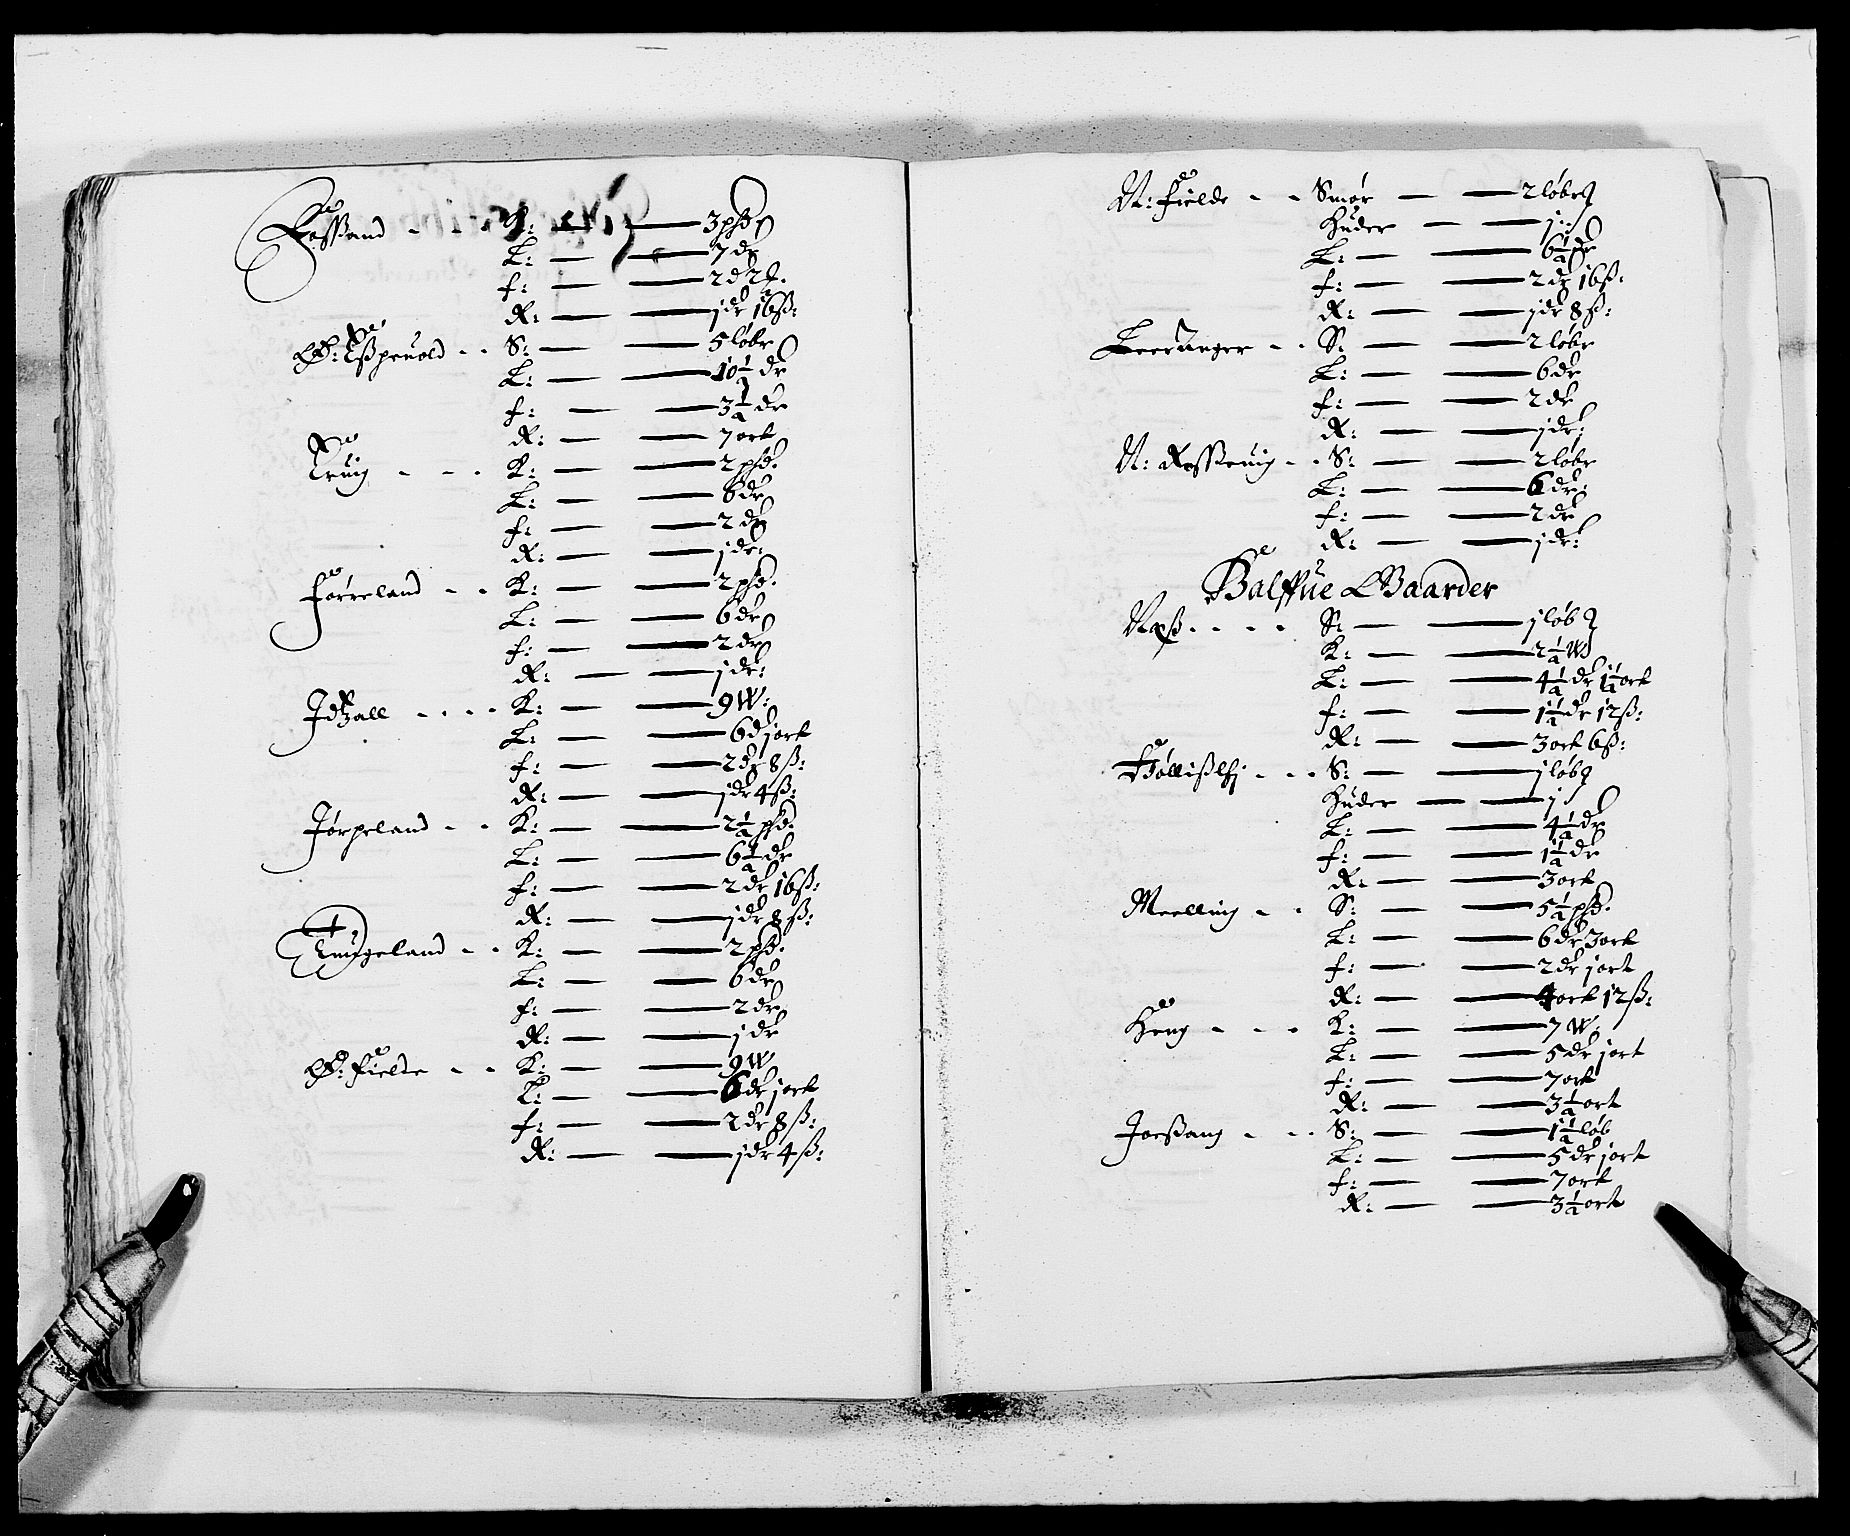 Fossand - - K: — — 3 psd
L: — — 7 dr
f: — — 2 d 2
R: — — j dr 16 ß:
Espeuold - - S: — — 5 løbr
L: — — 10½ dr
f: — — 3½ dr
R: — — 7 ort
Eruig - - - K: — — 2 psd.
L: — — 6 dr
f: — — 2 dr
R: — — j dr:
Førreland - - K: — — 2 psd.
L: — — 6 dr
f: — — 2 dr
R: — — j dr:
Idzall - - - - K: — — 9 W:
L: — — 6 d j ort
f: — — 2 dr 8 ß:
R: — — j dr 4 ß:
Jørpeland - - K: — — 2½ psd.
L: — — 6½ dr
f: — — 2 dr 16 ß:
R: — — j dr 8 ß:
Tungeland - - K: — — 2 psd.
L: — — 6 dr
f: — — 2 dr
R: — — j dr
Ø: Fielde - - K: — — 9 W
L: — — 6 dr j ort
f: — — 2 dr 8 ß:
R: — — j dr 4 ß:
N: Fielde - - Smør — — 2 løbr
Huder — — j
L: — — 6½ dr
f: — — 2 dr 16 ß:
R: — — j dr 8 ß:
Leeranger - - S: — — 2 løbr
L: — — 6 dr
f: — — 2 dr
R: — — j dr:
N: Rosseuig - - S: — — 2 løbr
L: — — 6 dr:
f: — — 2 dr
R: — — j dr:
Halffue Gaarder
Næß - - - - S: — — j løb
K: — — 2½ W
L: — — 4½ dr 1½ ort
f: — — 1½ dr 12 ß:
R: — — 3 ort 6 ß:
- - - S: — — j løb
Huder — — j
L: — — 4½ dr
f: — — 1½ dr
R: — — 3 ort
Meelling - - S: — — 5½ psd.
L: — — 6 dr 3 ort
f: — — 2 dr j ort
R: — — 4 ort 12 ß:
Heng - - - K: — — 7 W.
L: — — 5 dr j ort
f: — — 7 ort
R: — — 3½ ort
Jorßang - - - S: — — 1½ løb
L: — — 5 dr j ort
f: — — 7 ort
R: — — 3½ ort